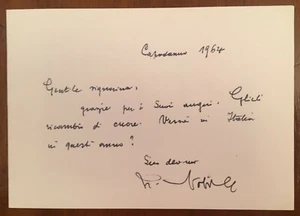 Capodanno 1964
Gentile signorina,
grazie per i Suoi auguri. Glieli
ricambio di cuore. Verrà in Italia
in quest'anno?
Suo dev.mo